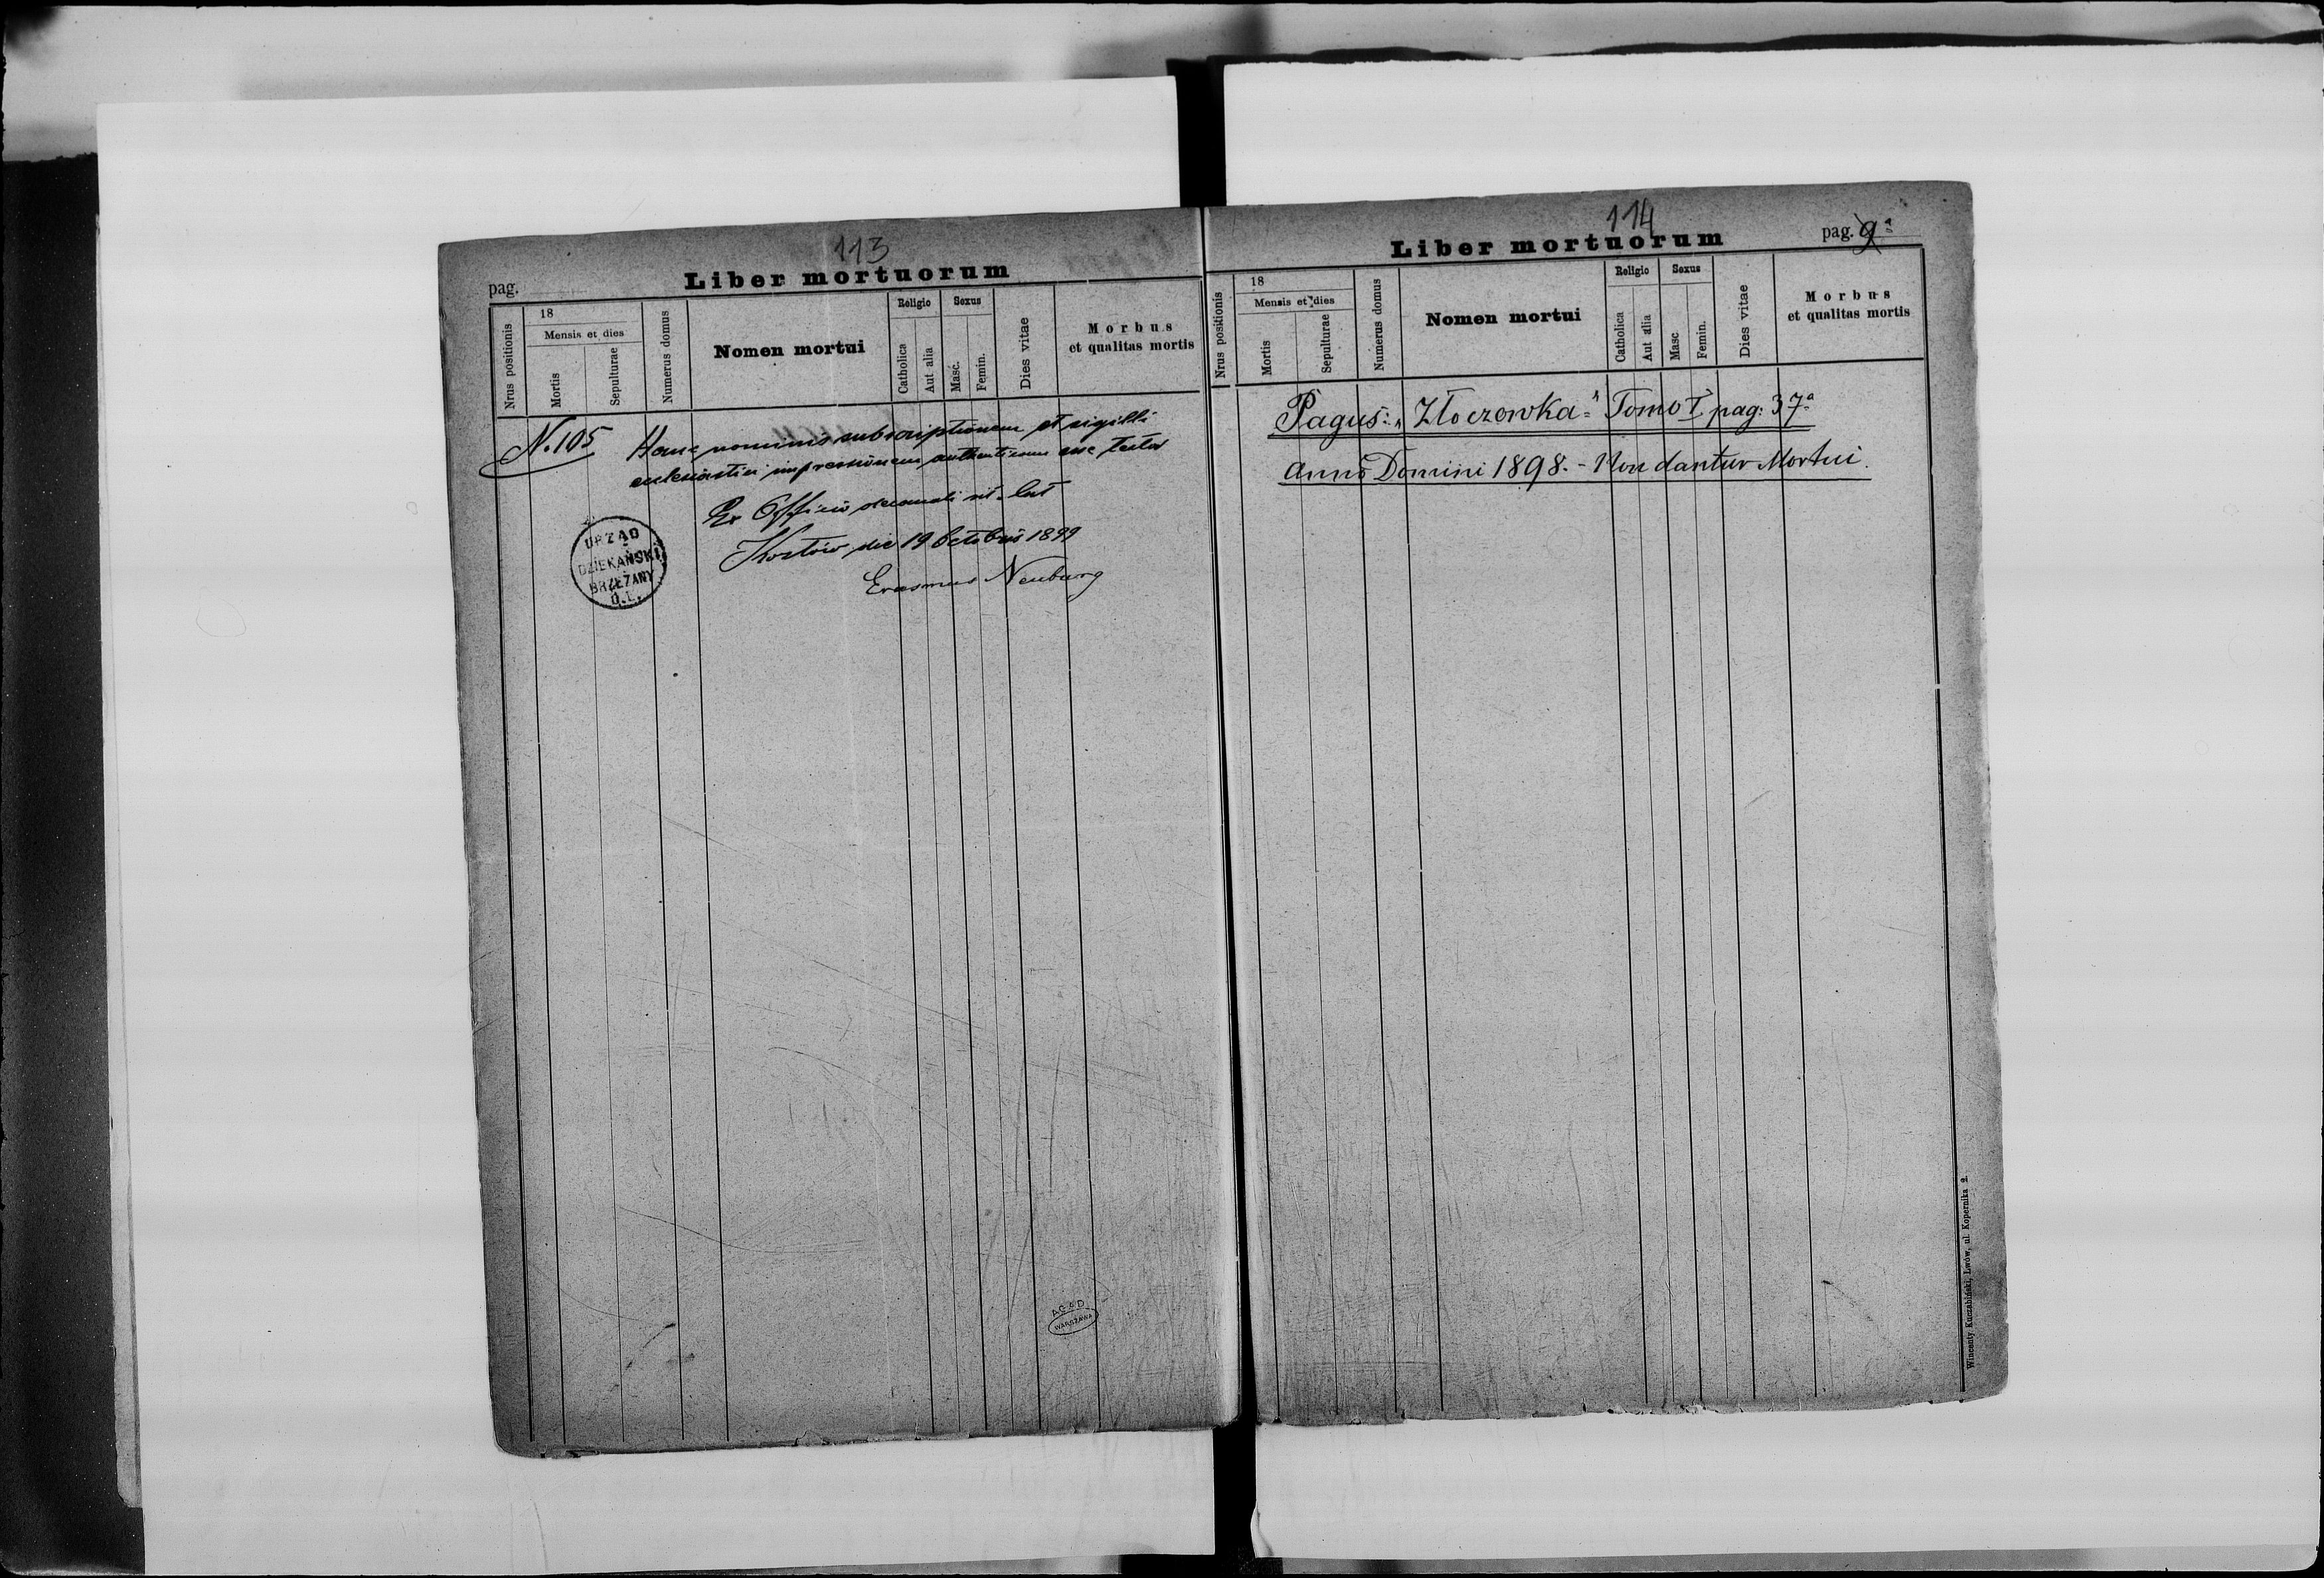 113
pag.
Liber mortuorum
Nrus positionis
18
Mensis et dies
Mortis
Sepulturae
Numerus domus
Nomen mortui
Religio
Catholica
Aut alia
Sexus
Masc.
Femin.
Dies vitae
Morbus
et qualitas mortis
N. 105 Hanc nominis subscriptionem et sigilli
ecclesiastici impressionem authenticam esse testor
Ex Officio decanali rit. lat
die 19 Octobris 1899
Erasmus Neuburg
URZĄD
DZIEKAŃSKI
BRZEŻANY
O.L.
AGAD
WARSZAWA
114
Liber mortuorum
pag. 9a
Nrus positionis
18
Mensis et dies
Mortis
Sepulturae
Numerus domus
Nomen mortui
Religio
Catholica
Aut alia
Sexus
Masc
Femin.
Dies vitae
Morbus
et qualitas mortis
Pagus: „Złoczowka" Tomo I. pag: 37a
Anno Domini 1898. - Non dantur Mortui.
Wincenty Kuczabiński, Lwów, ul. Kopernika 2.